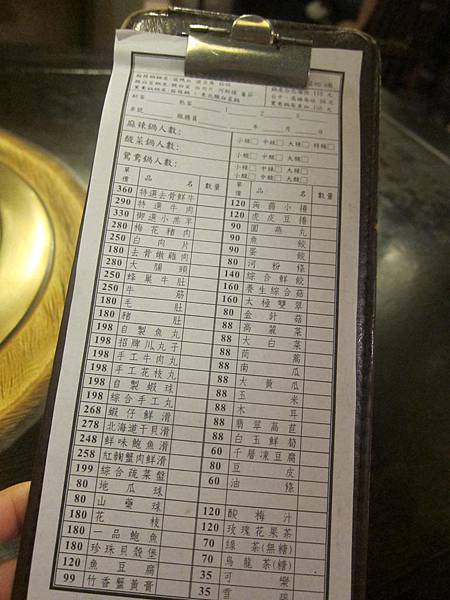 麻辣鍋人數:
酸菜鍋人數:
鴛鴦鍋人數:
小辣□ 中辣□ 大辣□ 特辣□
小辣□ 中辣□ 大辣□
單價 品名 數量
360 特選去骨鮮牛
290 特選牛肉
330 御選小羔羊
280 梅花豬肉
250 白肉片
180 去骨嫩雞肉
280 大腸頭
250 蜂巢牛肚
250 牛筋
180 毛肚
180 豬肚
198 自製魚丸
198 招牌川丸子
198 手工牛肉丸
198 手工花枝丸
198 自製蝦球
198 綜合手工丸
268 蝦仔鮮滑
278 北海道干貝滑
248 鮮味鮑魚滑
258 紅麴蟹肉鮮滑
199 綜合蔬菜盤
80 地瓜球
80 山藥球
180 花枝
180 一品鮑魚
180 珍珠貝殼堡
120 魚豆腐
99 竹香蟹黃膏
單價 品名 數量
120 蒟蒻小捲
120 虎皮豆捲
90 圓燕丸
90 魚餃
90 蛋餃
80 河粉條
140 綜合鮮餃
160 養生綜合菇
160 太極雙翠
80 金針菇
88 高麗菜
88 大白菜
88 茼蒿
88 南瓜
88 大黃瓜
88 玉米
88 木耳
88 翡翠萵苣
88 白玉鮮筍
60 千層凍豆腐
80 豆皮
60 油條
120 酸梅汁
120 玫瑰花果茶
70 綠茶(無糖)
70 烏龍茶(無糖)
35 可樂
35 雪碧